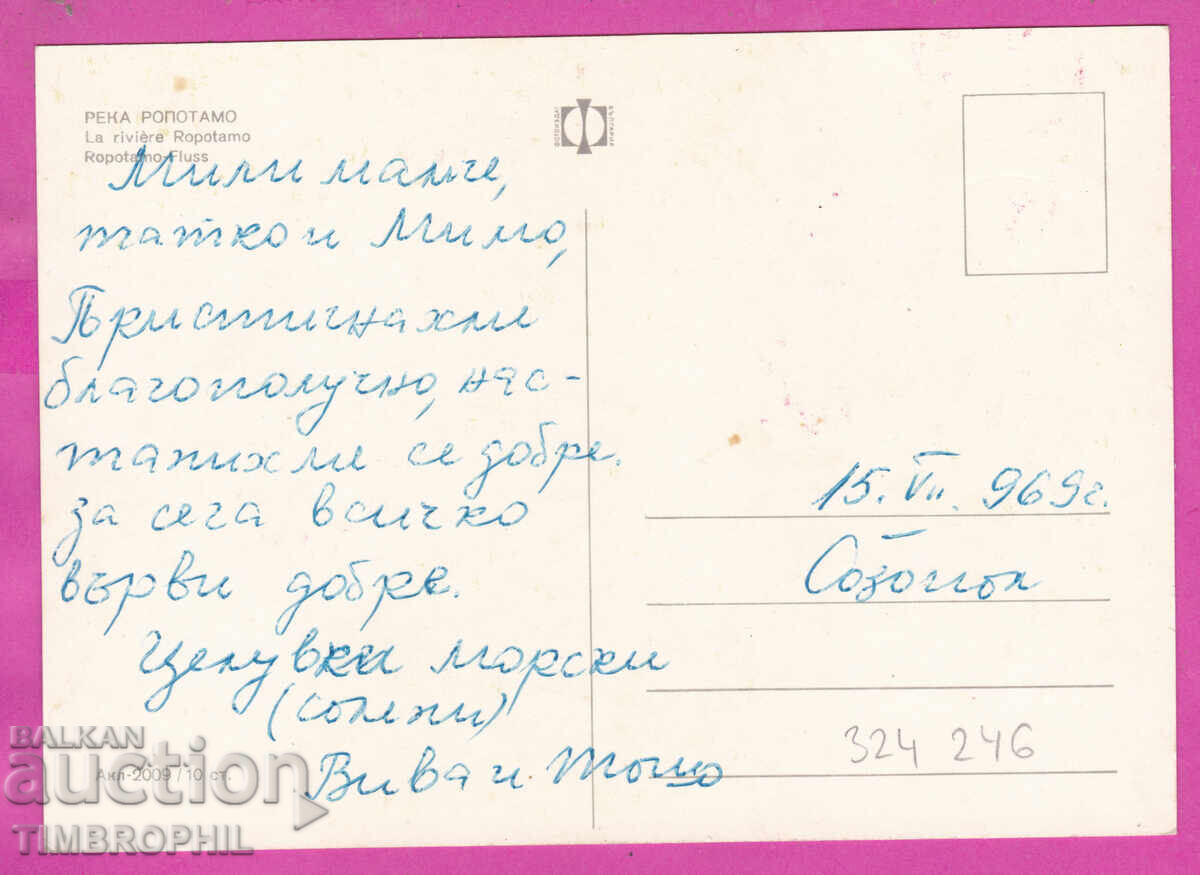 РЕКА РОПОТАМО
La rivière Ropotamo
Ropotamo-Fluss
ФОТОИЗДАТ
БЪЛГАРИЯ
Мили мамче,
татко и Мимо,
Пристигнахме
благополучно, нас-
танихме се добре.
за сега всичко
върви добре.
Целувки морски
(солени)
Вива и Тошо
15. VII. 969г.
Созопол
324 246
Акл-2009/10 ст.
BALKAN
auction
TIMBROPHIL